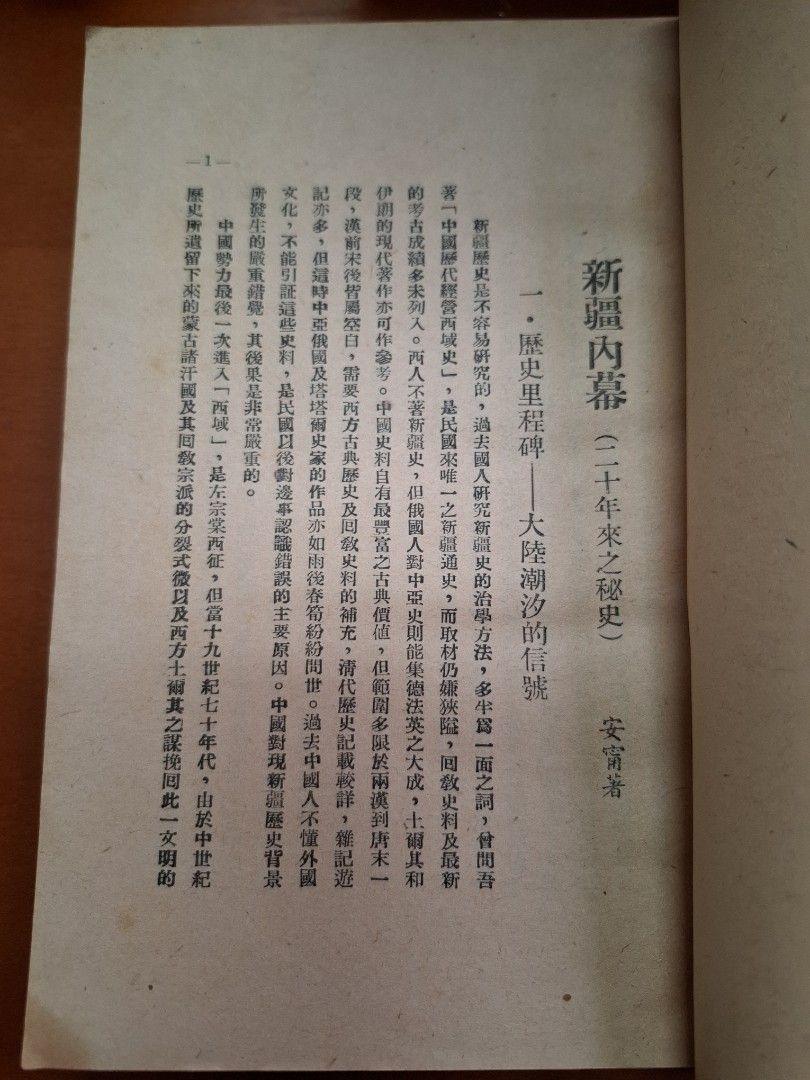 新疆內幕(二十年來之秘史)
安甯著
一·歷史里程碑——大陸潮汐的信號
新疆歷史是不容易研究的,過去國人研究新疆史的治學方法,多半爲一面之詞,曾問吾
著「中國歷代經營西域史」,是民國來唯一之新疆通史,而取材仍嫌狹隘,回敎史料及最新
的考古成績多未列入。西人不著新疆史,但俄國人對中亞史則能集德法英之大成,土爾其和
伊朗的現代著作亦可作參考。中國史料自有最豐富之古典價値,但範圍多限於兩漢到唐末一
段,漢前宋後皆屬空白,需要西方古典歷史及回敎史料的補充,淸代歷史記載較詳,雜記遊
記亦多,但這時中亞俄國及塔塔爾史家的作品亦如雨後春筍紛紛問世。過去中國人不懂外國
文化,不能引証這些史料,是民國以後對邊事認識錯誤的主要原因。中國對現新疆歷史背景
所發生的嚴重錯覺,其後果是非常嚴重的。
中國勢力最後一次進入「西域」,是左宗棠西征,但當十九世紀七十年代,由於中世紀
歷史所遺留下來的蒙古諸汗國及其回敎宗派的分裂式微以及西方土爾其之謀挽回此一文明的
—1—